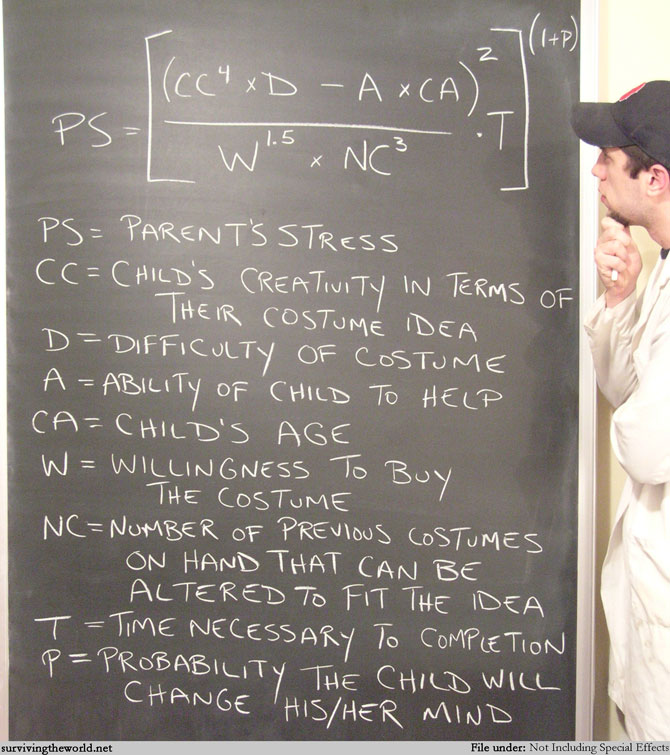 PS = [ (CC⁴ × D − A × CA)² / W^1.5 × NC³ · T ]^(1+P)
PS = PARENT'S STRESS
CC = CHILD'S CREATIVITY IN TERMS OF
THEIR COSTUME IDEA
D = DIFFICULTY OF COSTUME
A = ABILITY OF CHILD TO HELP
CA = CHILD'S AGE
W = WILLINGNESS TO BUY
THE COSTUME
NC = NUMBER OF PREVIOUS COSTUMES
ON HAND THAT CAN BE
ALTERED TO FIT THE IDEA
T = TIME NECESSARY TO COMPLETION
P = PROBABILITY THE CHILD WILL
CHANGE HIS/HER MIND
survivingtheworld.net
File under: Not Including Special Effects